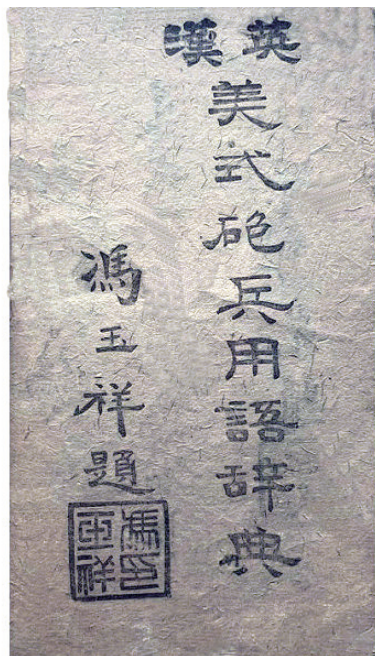 英漢
美式砲兵用語辞典
馮玉祥題
馮玉祥印